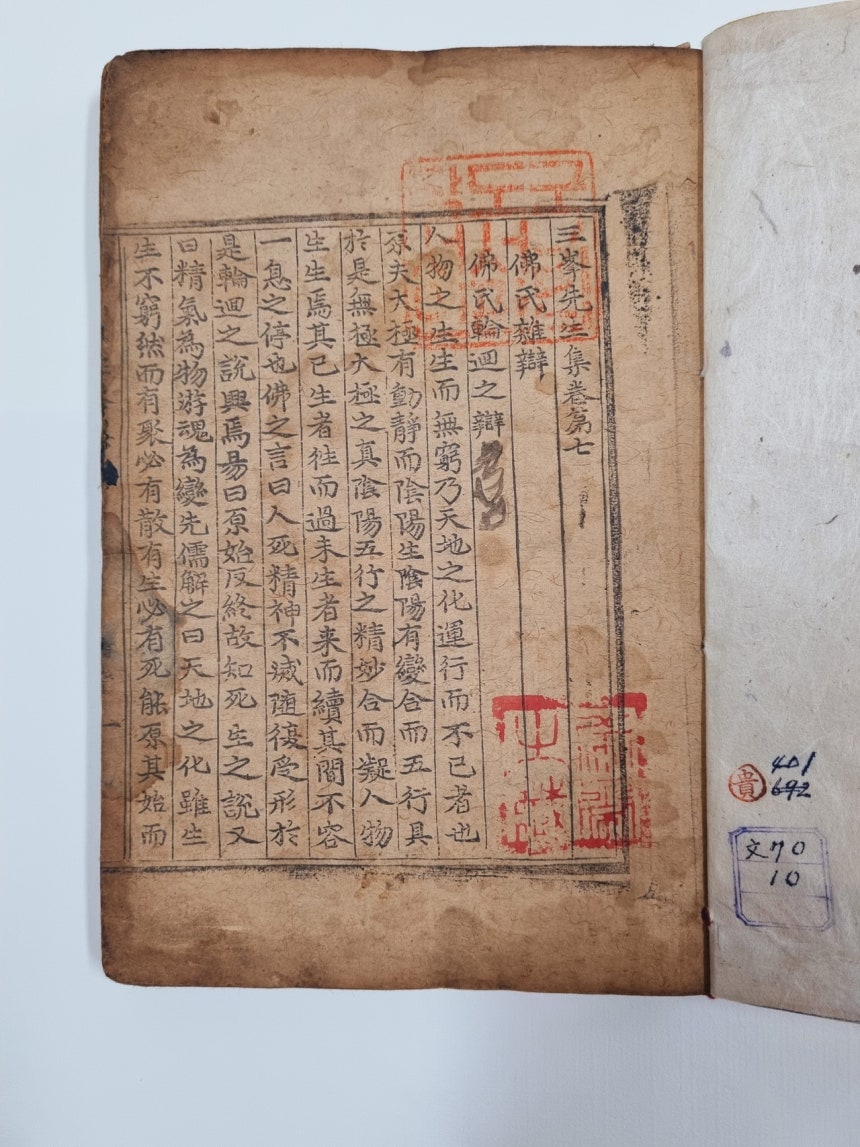 三峯先生集卷第七
佛氏雜辯
佛氏輪迴之辯
人物之生生而無窮乃天地之化運行而不已者也
原夫大極有動靜而陰陽生陰陽有變合而五行具
於是無極大極之真陰陽五行之精妙合而凝人物
生生焉其已生者往而過未生者来而續其間不容
一息之停也佛之言曰人死精神不滅随復受形於
是輪迴之說興焉易曰原始反終故知死生之說又
曰精氣為物游魂為變先儒解之曰天地之化雖生
生不窮然而有聚必有散有生必有死能原其始而
貴
401
692
文70
10